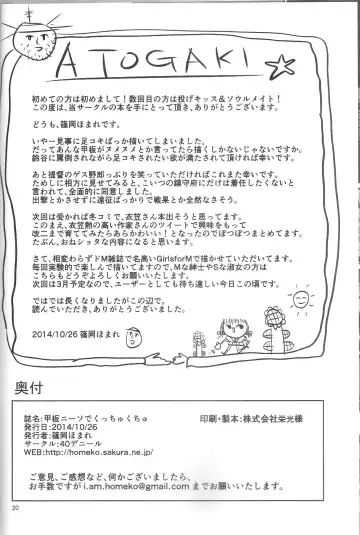 ATOGAKI
初めての方は初めまして！数回目の方は投げキッス＆ソウルメイト！
この度は、当サークルの本を手にとって頂き、ありがとうございます。
どうも、篠岡ほまれです。
いやー見事に足コキばっか描いてしまいました。
だってあんな甲板がヌメヌメとか言ってたら描くしかないじゃないですか。
鈴谷に罵倒されながら足コキされたい欲が満たされて頂ければ幸いです。
あと提督のゲス野郎っぷりを笑っていただければこれまた幸いです。
ためしに相方に見せてみると、こいつの鎮守府にだけは着任したくないと
言われて、全面的に同意しました。
出撃とかさせずに遠征ばっかりで戦果とか全然なさそう。
次回は受かれば冬コミで、衣笠さん本出そうと思ってます。
このまえ、衣笠熱の高い作家さんのツイートで興味をもって
改二まで育ててみたらあらかわいい！となったのでぽつぽつまとめてます。
たぶん、おねショタな内容になると思います。
さて、相変わらずドM雑誌で名高いGirlsforMで描かせていただいてます。
毎回実験的で楽しんで描いてますので、Mな紳士やSな淑女の方は
こちらもどうぞよろしくお願いいたします。
次回は3月予定なので、ユーザーとしても待ち遠しい今日この頃です。
ではでは長くなりましたがこの辺で。
読んでいただき、ありがとうございました。
2014/10/26 篠岡ほまれ
奥付
誌名：甲板ニーソでくっちゅくちゅ
発行日：2014/10/26
発行者：篠岡ほまれ
サークル：40デニール
WEB：http://homeko.sakura.ne.jp/
印刷・製本：株式会社栄光様
ご意見、ご感想など、何かございましたら、
お手数ですが i.am.homeko@gmail.com までお願いいたします。
20